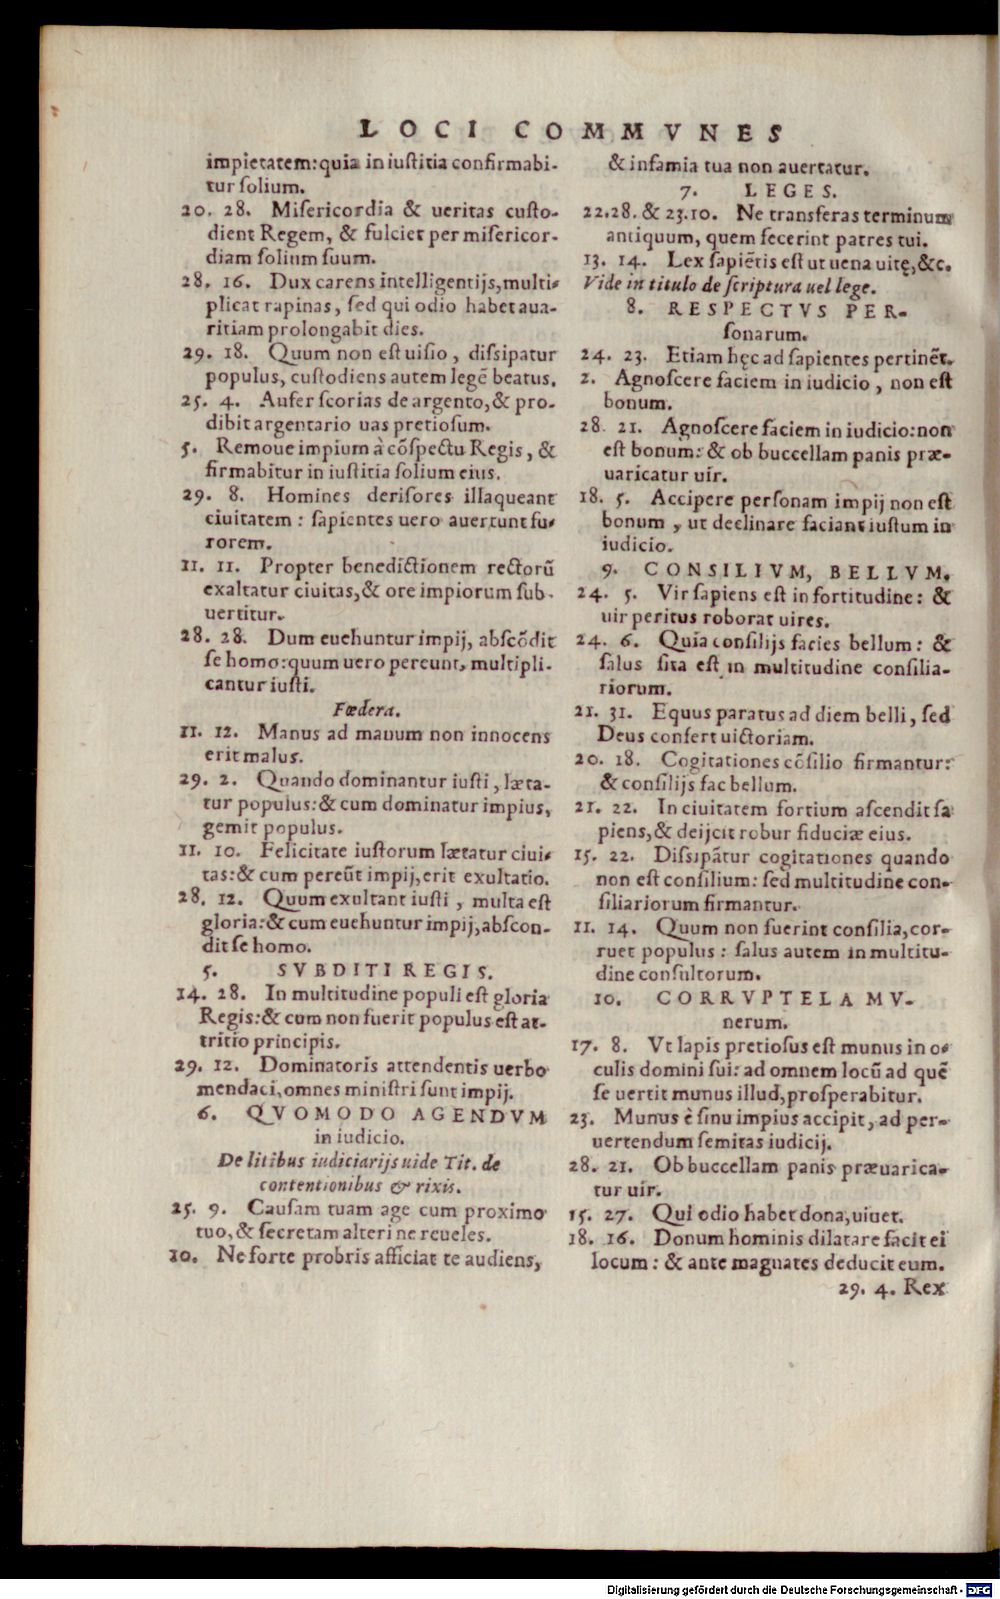 LOCI COMMVNES
impietatem: quia in iustitia confirmabi-
tur solium.
20. 28. Misericordia & ueritas custo-
dient Regem, & fulciet per misericor-
diam solium suum.
28. 16. Dux carens intelligentijs, multi-
plicat rapinas, sed qui odio habet aua-
ritiam prolongabit dies.
29. 18. Quum non est uisio, dissipatur
populus, custodiens autem legẽ beatus.
25. 4. Aufer scorias de argento, & pro-
dibit argentario uas pretiosum.
5. Remoue impium à cõspectu Regis, &
firmabitur in iustitia solium eius.
29. 8. Homines derisores illaqueant
ciuitatem: sapientes uero auertunt fu-
rorem.
11. 11. Propter benedictionem rectorũ
exaltatur ciuitas, & ore impiorum sub-
uertitur.
28. 28. Dum euehuntur impij, abscõdit
se homo: quum uero pereunt, multipli-
cantur iusti.
Fœdera.
11. 12. Manus ad manum non innocens
erit malus.
29. 2. Quando dominantur iusti, læta-
tur populus: & cum dominatur impius,
gemit populus.
11. 10. Felicitate iustorum lætatur ciui-
tas: & cum pereũt impij, erit exultatio.
28. 12. Quum exultant iusti, multa est
gloria: & cum euehuntur impij, abscon-
dit se homo.
5. SVBDITI REGIS.
14. 28. In multitudine populi est gloria
Regis: & cum non fuerit populus est at-
tritio principis.
29. 12. Dominatoris attendentis uerbo
mendaci, omnes ministri sunt impij.
6. QVOMODO AGENDVM
in iudicio.
De litibus iudiciarijs uide Tit. de
contentionibus & rixis.
25. 9. Causam tuam age cum proximo
tuo, & secretam alteri ne reueles.
10. Ne forte probris afficiat te audiens,
& infamia tua non auertatur.
7. LEGES.
22. 28. & 23. 10. Ne transferas terminum
antiquum, quem fecerint patres tui.
13. 14. Lex sapiẽtis est ut uena uitę, &c.
Vide in titulo de scriptura uel lege.
8. RESPECTVS PER-
sonarum.
24. 23. Etiam hęc ad sapientes pertinẽt.
2. Agnoscere faciem in iudicio, non est
bonum.
28. 21. Agnoscere faciem in iudicio: non
est bonum: & ob buccellam panis præ-
uaricatur uir.
18. 5. Accipere personam impij non est
bonum, ut declinare faciant iustum in
iudicio.
9. CONSILIVM, BELLVM.
24. 5. Vir sapiens est in fortitudine: &
uir peritus roborat uires.
24. 6. Quia consilijs facies bellum: &
salus sita est in multitudine consilia-
riorum.
21. 31. Equus paratus ad diem belli, sed
Deus confert uictoriam.
20. 18. Cogitationes cõsilio firmantur:
& consilijs fac bellum.
21. 22. In ciuitatem fortium ascendit sa
piens, & deijcit robur fiduciæ eius.
15. 22. Dissipãtur cogitationes quando
non est consilium: sed multitudine con-
siliariorum firmantur.
11. 14. Quum non fuerint consilia, cor-
ruet populus: salus autem in multitu-
dine consultorum.
10. CORRVPTELA MV-
nerum.
17. 8. Vt lapis pretiosus est munus in o-
culis domini sui: ad omnem locũ ad quẽ
se uertit munus illud, prosperabitur.
23. Munus è sinu impius accipit, ad per-
uertendum semitas iudicij.
28. 21. Ob buccellam panis præuarica-
tur uir.
15. 27. Qui odio habet dona, uiuet.
18. 16. Donum hominis dilatare facit ei
locum: & ante magnates deducit eum.
29. 4. Rex
Digitalisierung gefördert durch die Deutsche Forschungsgemeinschaft - DFG